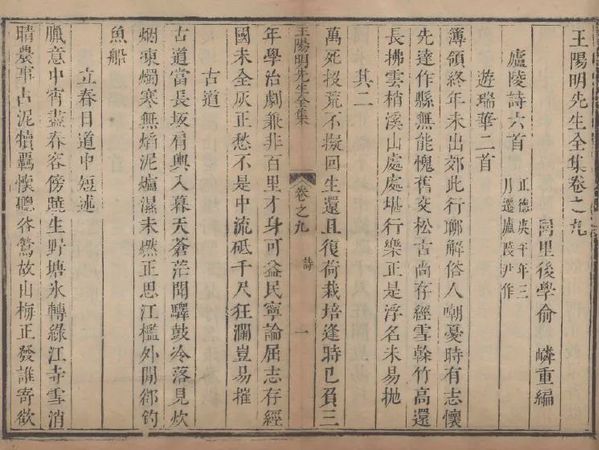 王陽明先生全集卷之九
嵩里後學俞 嶙重編
廬陵詩六首 正德庚午年三月遷廬陵尹作
遊瑞華二首
簿領終年未出郊此行聊解俗人嘲憂時有志懷
先達作縣無能愧舊交松古尚存經雪幹竹高還
長拂雲梢溪山處處堪行樂正是浮名未易拋
其二
萬死投荒不擬回生還且復荷栽培逢時已負三
王陽明先生全集 卷之九 詩 一
年學治劇兼非百里才身可益民寧論屈志存經
國未全灰正愁不是中流砥千尺狂瀾豈易摧
古道
古道當長坂肩輿入暮天蒼茫聞驛鼓冷落見炊
烟凍燭寒無焰泥爐濕未燃正思江檻外閒郤釣
魚船
立春日道中短述
臘意中宵盡春容傍曉生野塘氷轉綠江寺雪消
晴農事占泥犢羈懷聽谷鶯故山梅正發誰寄欲